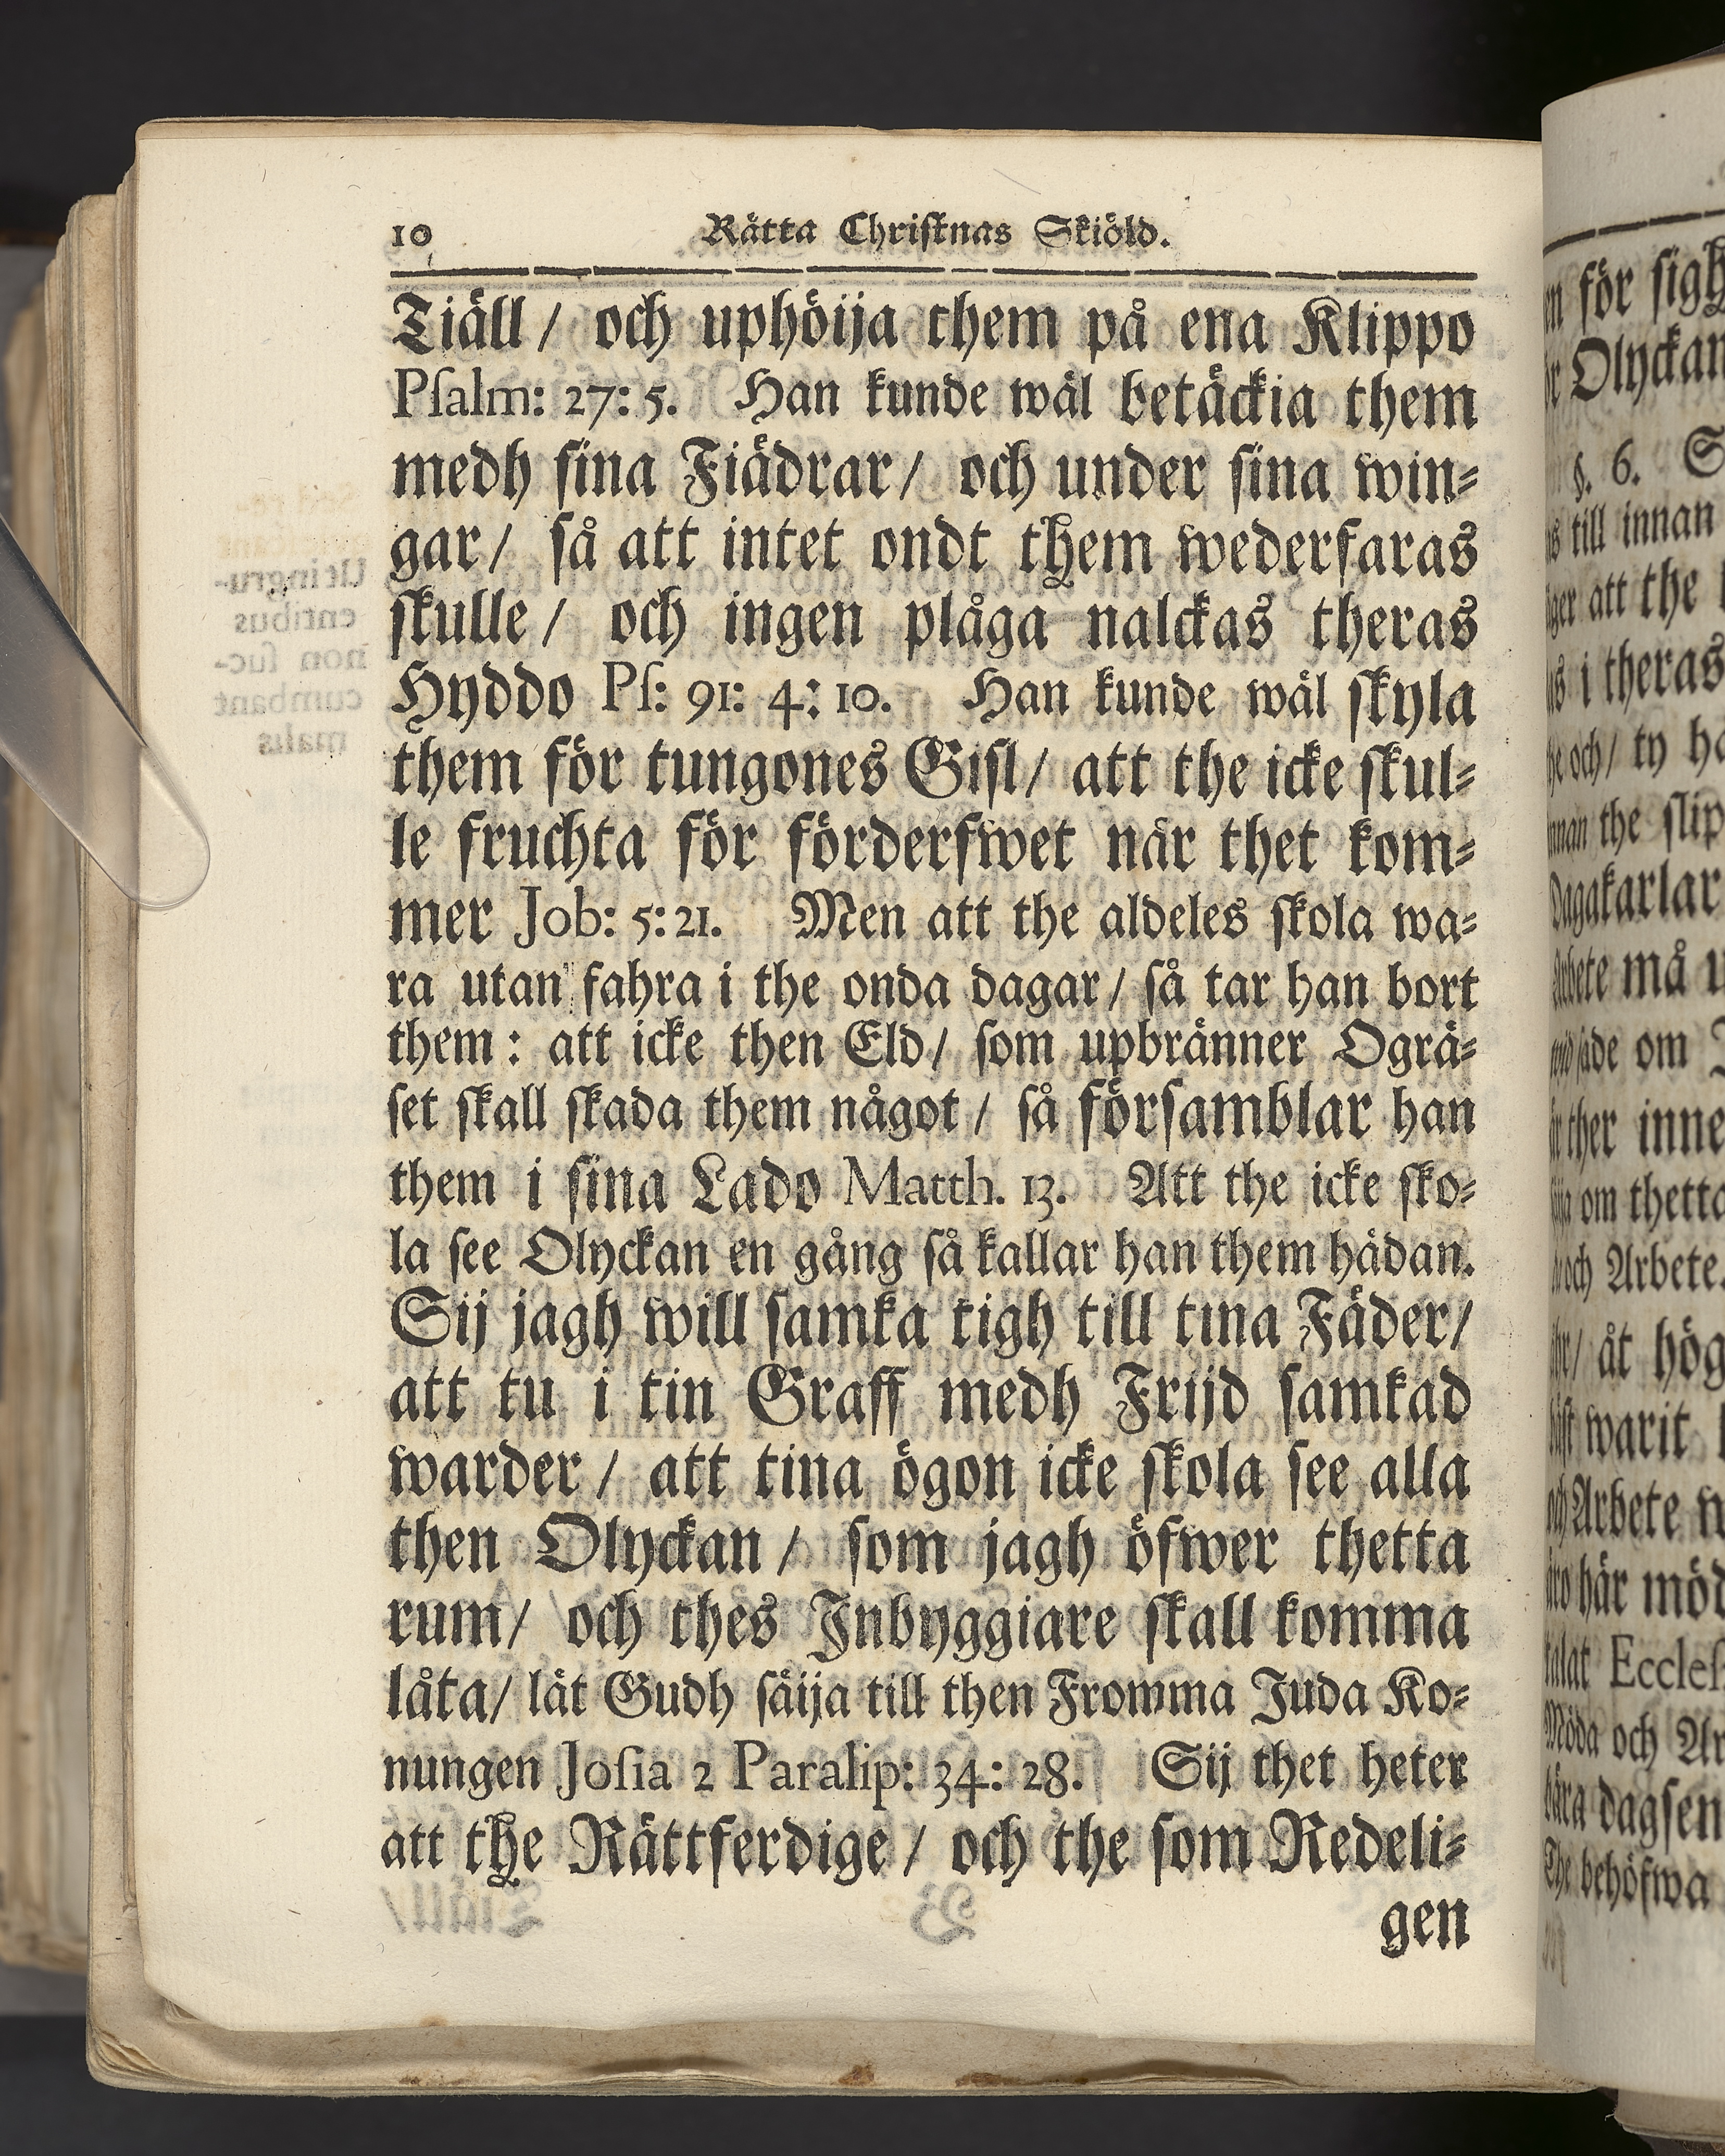 10 Rätta Christnas Skiöld.
Tiäll / och uphöija them på ena Klippo
Psalm: 27: 5. Han kunde wäl betäckia them
medh sina Fiädrar / och under sina win⸗
gar / så att intet ondt them wederfaras
skulle / och ingen plåga nalckas theras
Hyddo Ps: 91: 4: 10. Han kunde wäl skyla
them för tungones Gisl / att the icke skul⸗
le fruchta för förderfwet när thet kom⸗
mer Job: 5: 21. Men att the aldeles skola wa⸗
ra utan fahra i the onda dagar / så tar han bort
them : att icke then Eld / som upbränner Ogrä⸗
set skall skada them något / så församblar han
them i sina Lado Matth. 13. Att the icke sko⸗
la see Olyckan en gång så kallar han them hädan.
Sij jagh will samka tigh till tina Fäder /
att tu i tin Graff medh Frijd samkad
warder / att tina ögon icke skola see alla
then Olyckan / som jagh öfwer thetta
rum / och thes Inbyggiare skall komma
låta / lät Gudh säija till then Fromma Juda Ko⸗
nungen Josia 2 Paralip: 34: 28. Sij thet heter
att the Rättferdige / och the som Redeli⸗
gen
för sigh
Olyckan
§. 6. S
till innan
att the
i theras
och / ty
the slip
Dagakarlar
må
om
ther inne
om thetta
och Arbete.
åt hög
warit
Arbete
här möd
Eccles
och Ar
dagsen
The behöfwa